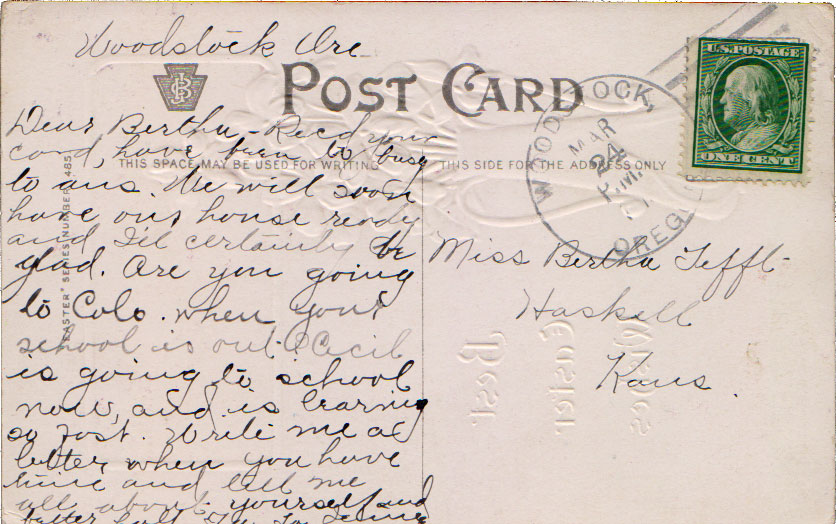 Woodstock Ore
POST CARD
U.S. POSTAGE
ONE CENT
WOODSTOCK,
OREG.
MAR
24
P.M.
THIS SPACE MAY BE USED FOR WRITING
THIS SIDE FOR THE ADDRESS ONLY
"EASTER" SERIES NUMBER 485
Dear Bertha, - Recd your
card, have been to busy
to ans. We will soon
have our house ready
and I'll certainly be
glad. Are you going
to Colo. when your
school is out? Cecil
is going to school
now, and is learning
so fast. Write me a
letter when you have
time and tell me
all about yourself and
better half
Miss Bertha Tefft
Haskell
Kans.
Best
Easter
Wishes